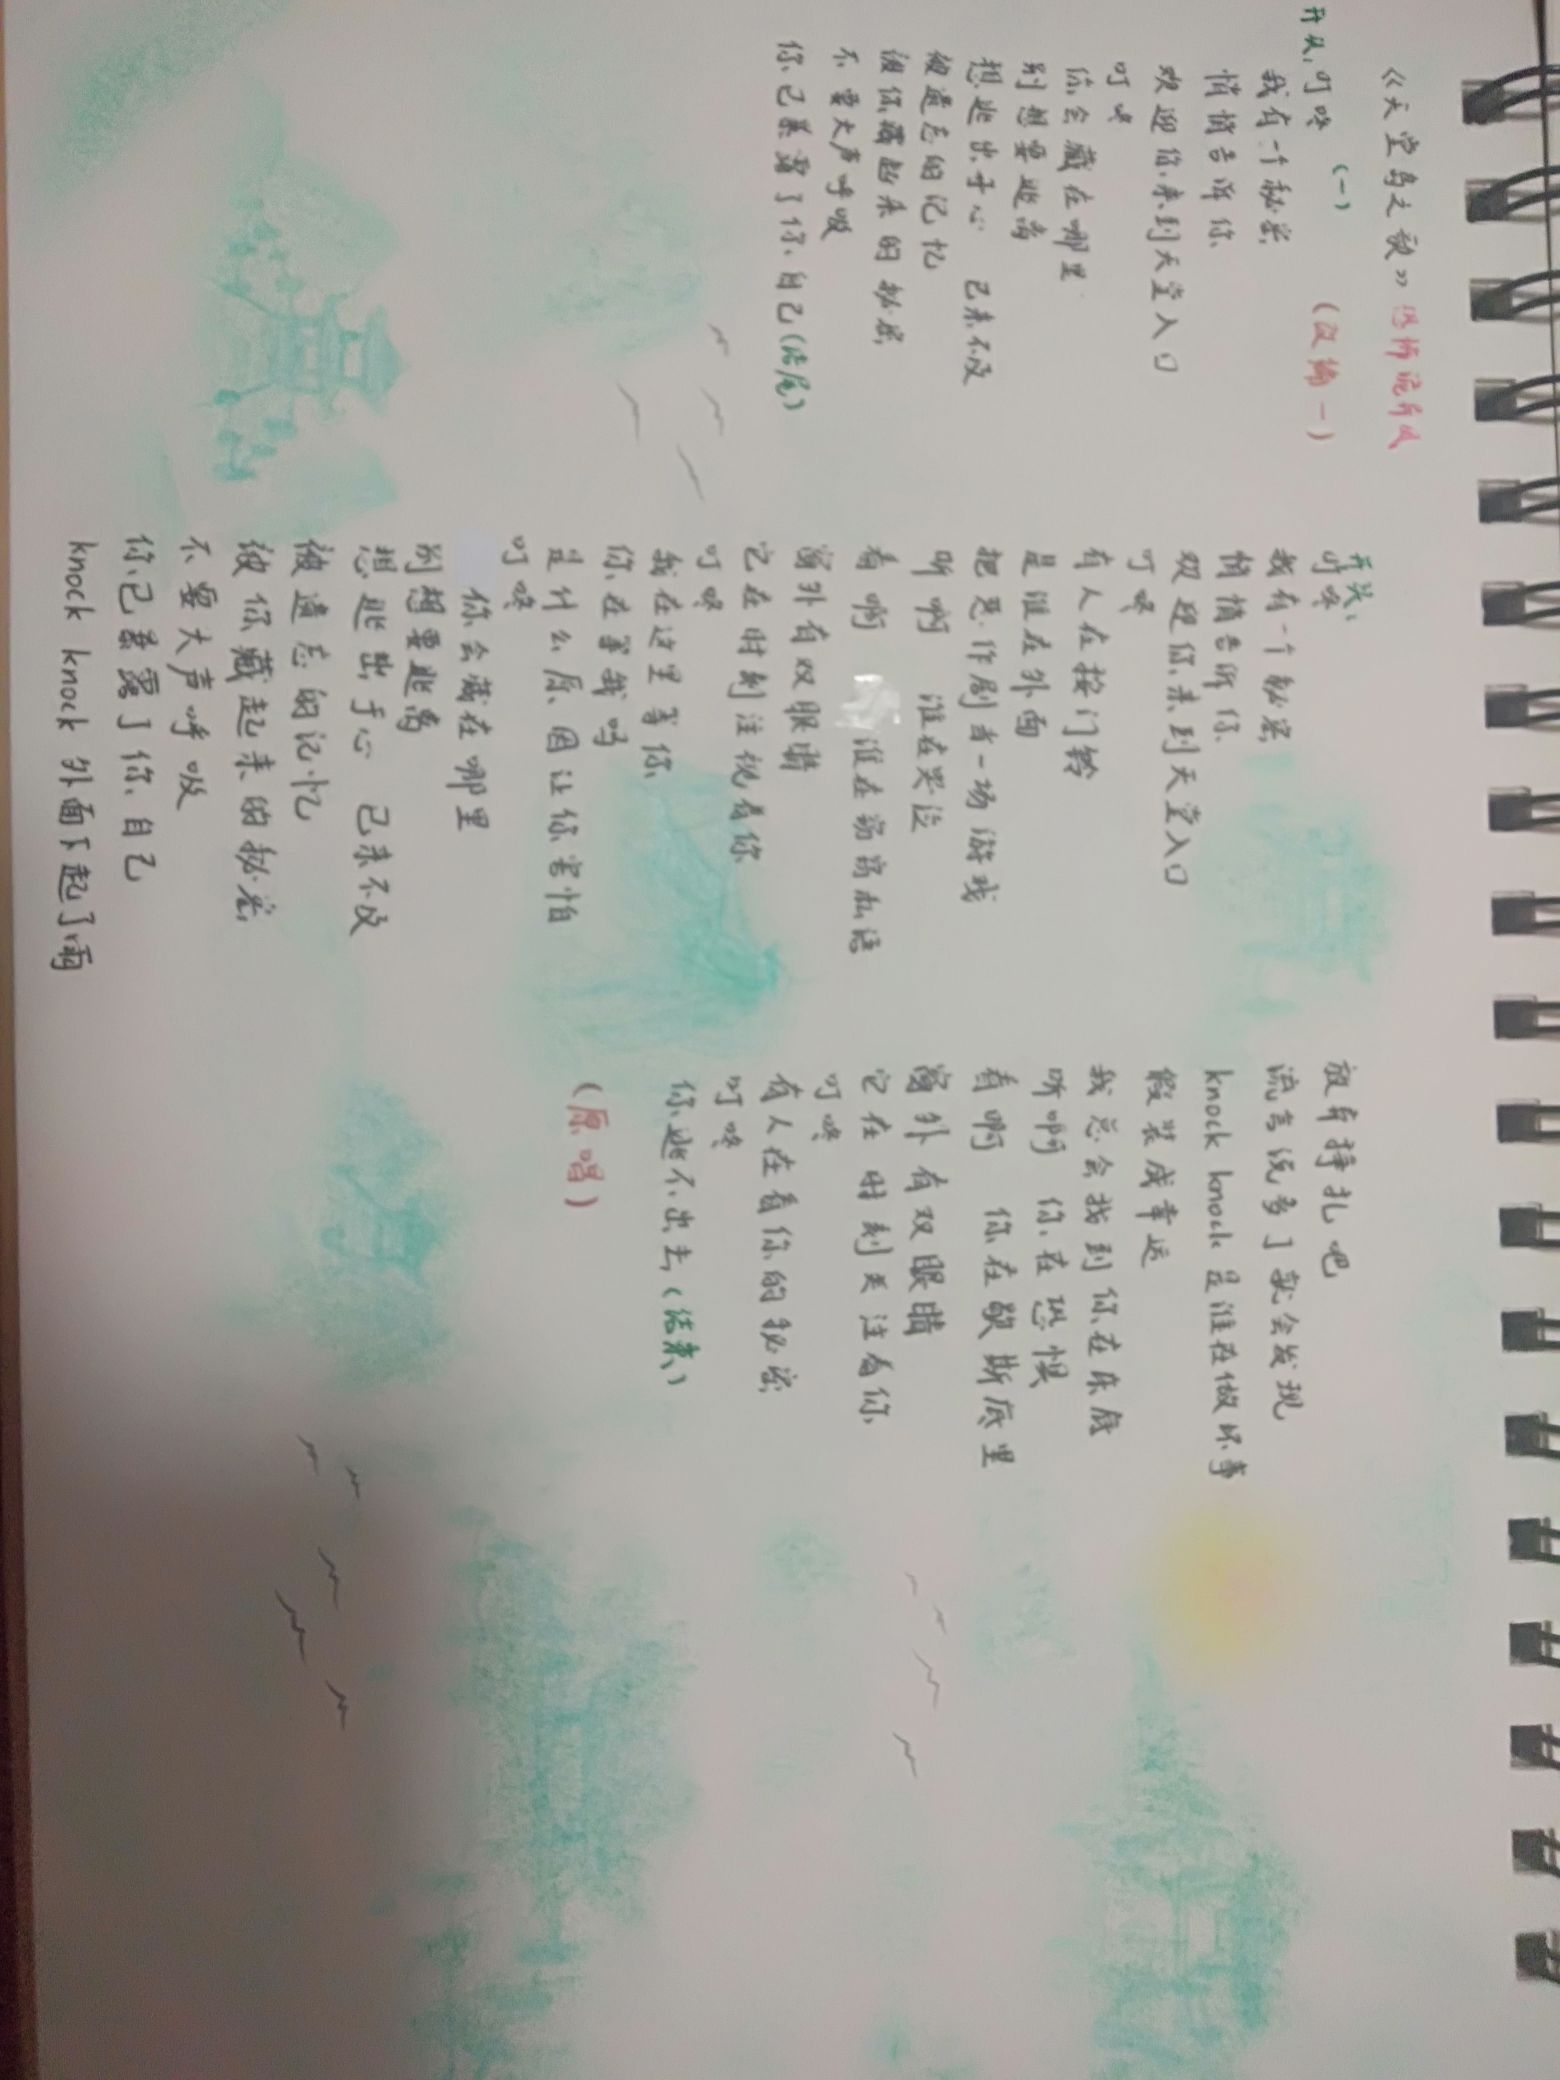 《天堂鸟之歌》恐怖流行风
(一) (改编一)
开头: 叮咚
我有一个秘密
悄悄告诉你
欢迎你来到天堂入口
叮咚
你会藏在哪里
别想要逃离
想逃出手心 已来不及
被遗忘的记忆
被你藏起来的秘密
不要大声呼吸
你已暴露了你自己(结尾)
开头:
叮咚
我有一个秘密
悄悄告诉你
欢迎你来到天堂入口
叮咚
有人在按门铃
是谁在外面
把恶作剧当一场游戏
听啊 谁在哭泣
看啊 谁在窃窃私语
窗外有双眼睛
它在时刻注视着你
叮咚
我在这里等你
你在等我吗
是什么原因让你害怕
叮咚
你会藏在哪里
别想要逃离
想逃出手心 已来不及
被遗忘的记忆
被你藏起来的秘密
不要大声呼吸
你已暴露了你自己
knock knock 外面下起了雨
放弃挣扎吧
流言说多了就会发现
knock knock 是谁在做坏事
假装成幸运
我总会找到你在床底
听啊 你在恐惧
看啊 你在歇斯底里
窗外有双眼睛
它在时刻关注着你
叮咚
有人在看你的秘密
叮咚
你逃不出去(结束)
(原唱)